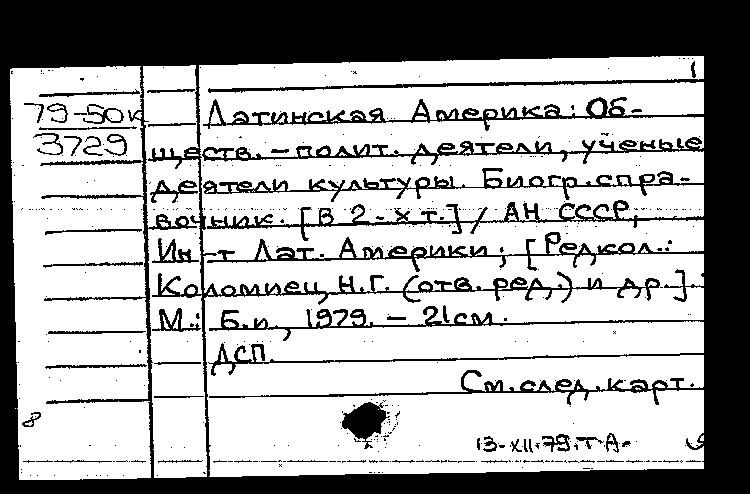 1
79-50к Латинская Америка: Об-
3729 ществ.-полит. деятели, ученые
деятели культуры. Биогр.спра-
вочник. [В 2-х т.] / АН СССР,
Ин-т Лат. Америки; [Редкол.:
Коломиец, Н.Г. (отв. ред.) и др.].
М.: Б.и., 1979. - 21см.
ДСП.
См.след.карт.
8
13-XII-79.Т-А-